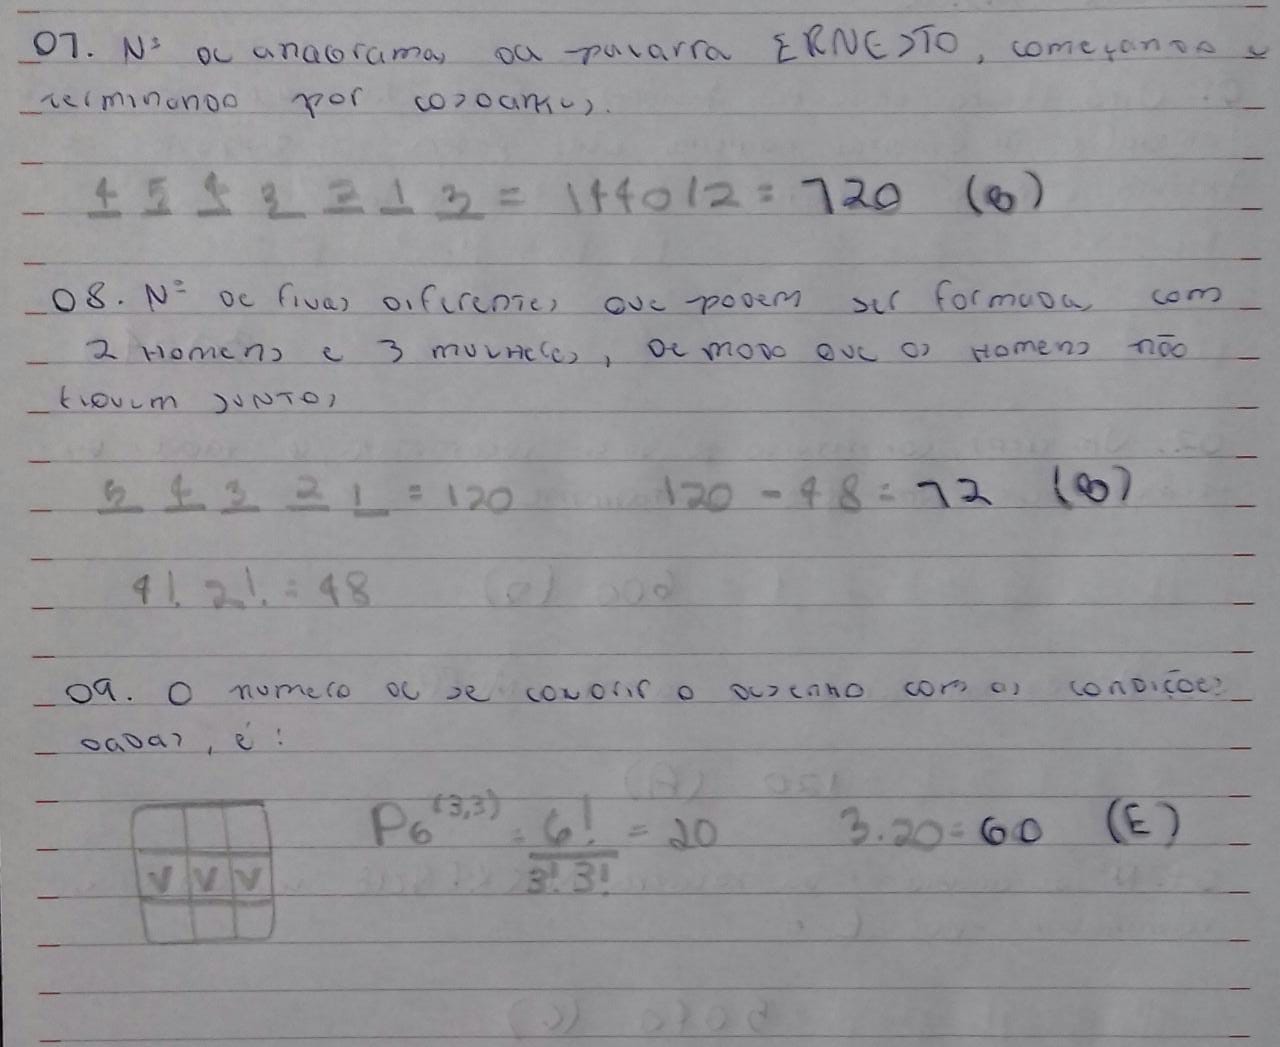 07. Nº de anagramas da palavra ERNESTO, começando e
terminando por consoantes.
4 5 4 3 2 1 3 = 1440/2 = 720 (B)
08. Nº de filas diferentes que podem ser formada com
2 Homens e 3 mulheres, de modo que os Homens não
fiquem juntos
5 4 3 2 1 = 120 120 - 48 = 72 (B)
4! 2! = 48
09. O numero de se colorir o desenho com as condições
dadas, é:
P6^(3,3) = 6!/3! 3! = 20 3.20 = 60 (E)
V V V